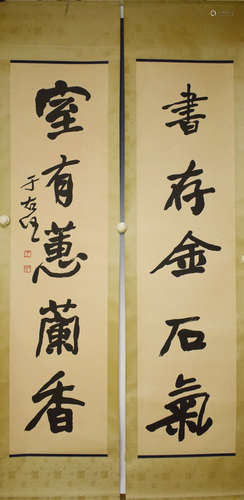 書存金石氣
室有蕙蘭香
于右任